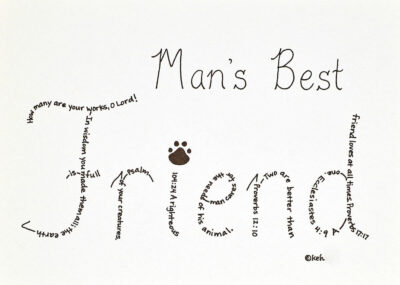 Man's Best
How many are your works, O Lord!
In wisdom you made them all; the earth
is full
of your creatures.
Psalm
104:24 A righteous
man cares for
the needs of his animal.
Proverbs 12:10
Two are better than
one. Ecclesiastes 4:9 A
friend loves at all times. Proverbs 17:17
©keh